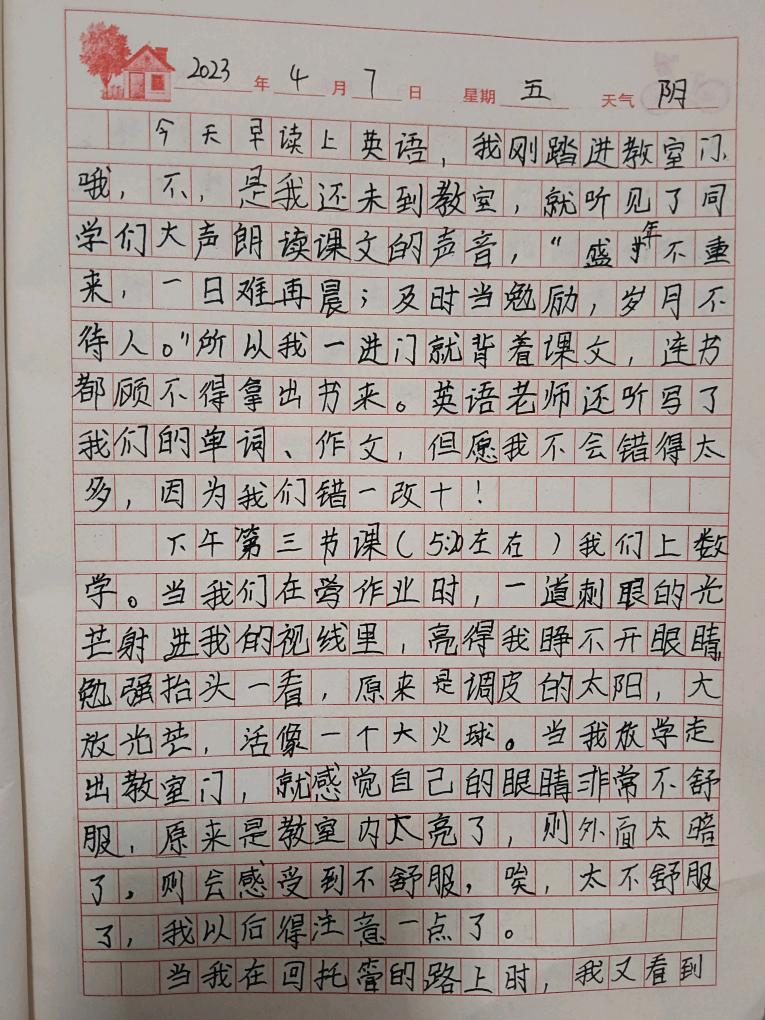 2023年4月7日 星期五 天气阴
今天早读上英语，我刚踏进教室门，
哦，不，是我还未到教室，就听见了同
学们大声朗读课文的声音，“盛年不重
来，一日难再晨；及时当勉励，岁月不
待人。”所以我一进门就背着课文，连书
都顾不得拿出书来。英语老师还听写了
我们的单词、作文，但愿我不会错得太
多，因为我们错一改十！
下午第三节课（5:20左右）我们上数
学。当我们在写作业时，一道刺眼的光
芒射进我的视线里，亮得我睁不开眼睛，
勉强抬头一看，原来是调皮的太阳，大
放光芒，活像一个大火球。当我放学走
出教室门，就感觉自己的眼睛非常不舒
服，原来是教室内太亮了，则外面太暗
了，则会感受到不舒服，唉，太不舒服
了，我以后得注意一点了。
当我在回托管的路上时，我又看到